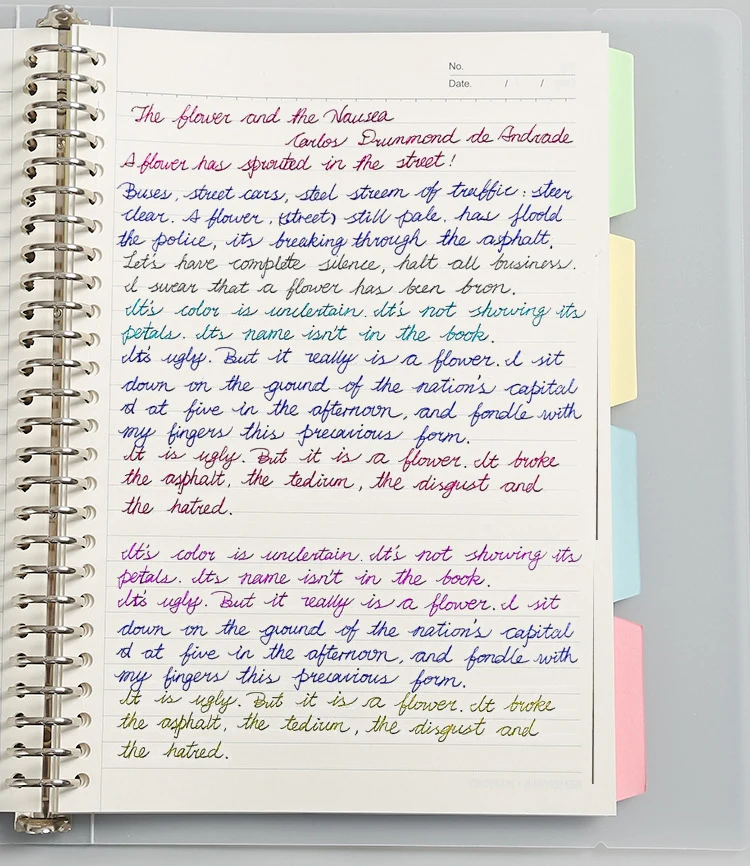 No.
Date. / /
The flower and the Nausea
Carlos Drummond de Andrade
A flower has sprouted in the street!
Buses, street cars, steel stream of traffic: steer
clear. A flower, (street) still pale, has floold
the police, its breaking through the asphalt.
Let's have complete silence, halt all business.
I swear that a flower has been bron.
It's color is undertain. It's not showing its
petals. Its name isn't in the book.
It's ugly. But it really is a flower. I sit
down on the ground of the nation's capital
d at five in the afternoon, and fondle with
my fingers this precavious form.
It is ugly. But it is a flower. It broke
the asphalt, the tedium, the disgust and
the hatred.
It's color is undertain. It's not showing its
petals. Its name isn't in the book.
It's ugly. But it really is a flower. I sit
down on the ground of the nation's capital
d at five in the afternoon, and fondle with
my fingers this precavious form.
It is ugly. But it is a flower. It broke
the asphalt, the tedium, the disgust and
the hatred.